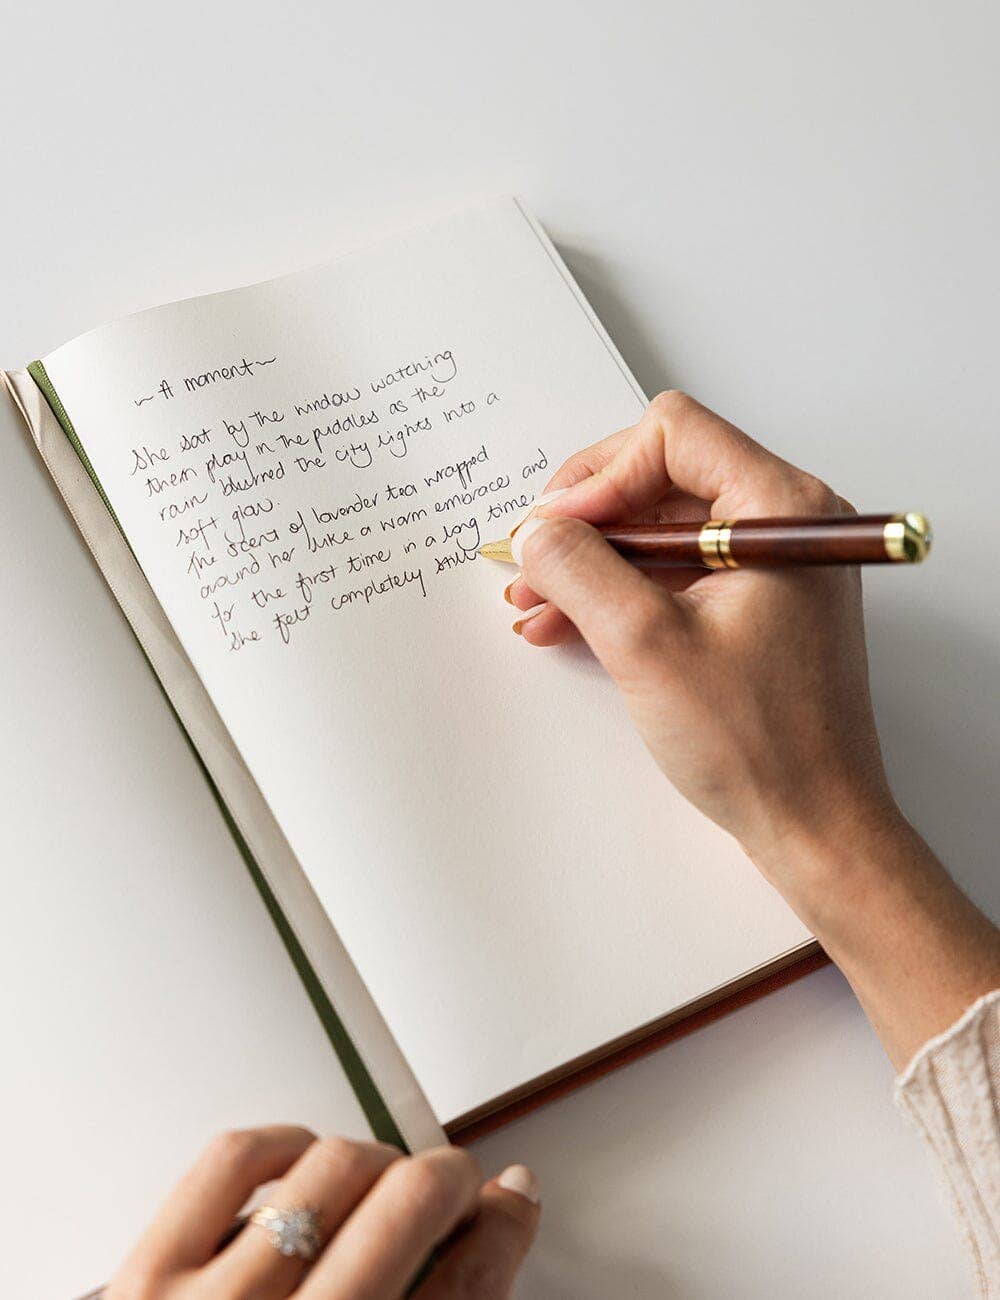 ~ A moment ~
She sat by the window watching
them play in the puddles as the
rain blurred the city lights into a
soft glow.
The scent of lavender tea wrapped
around her like a warm embrace and
for the first time in a long time,
She felt completely still